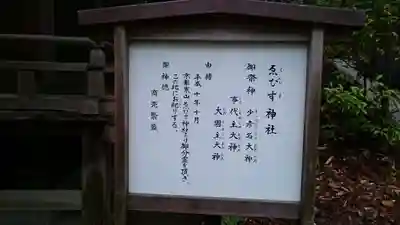 ゑびす神社
御祭神 少彦名大神
事代主大神
大國主大神
由緒
平成十年十月
京都東山 ゑびす神社より御分霊を頂き、
この地にお祀りする。
御神徳
商売繁盛